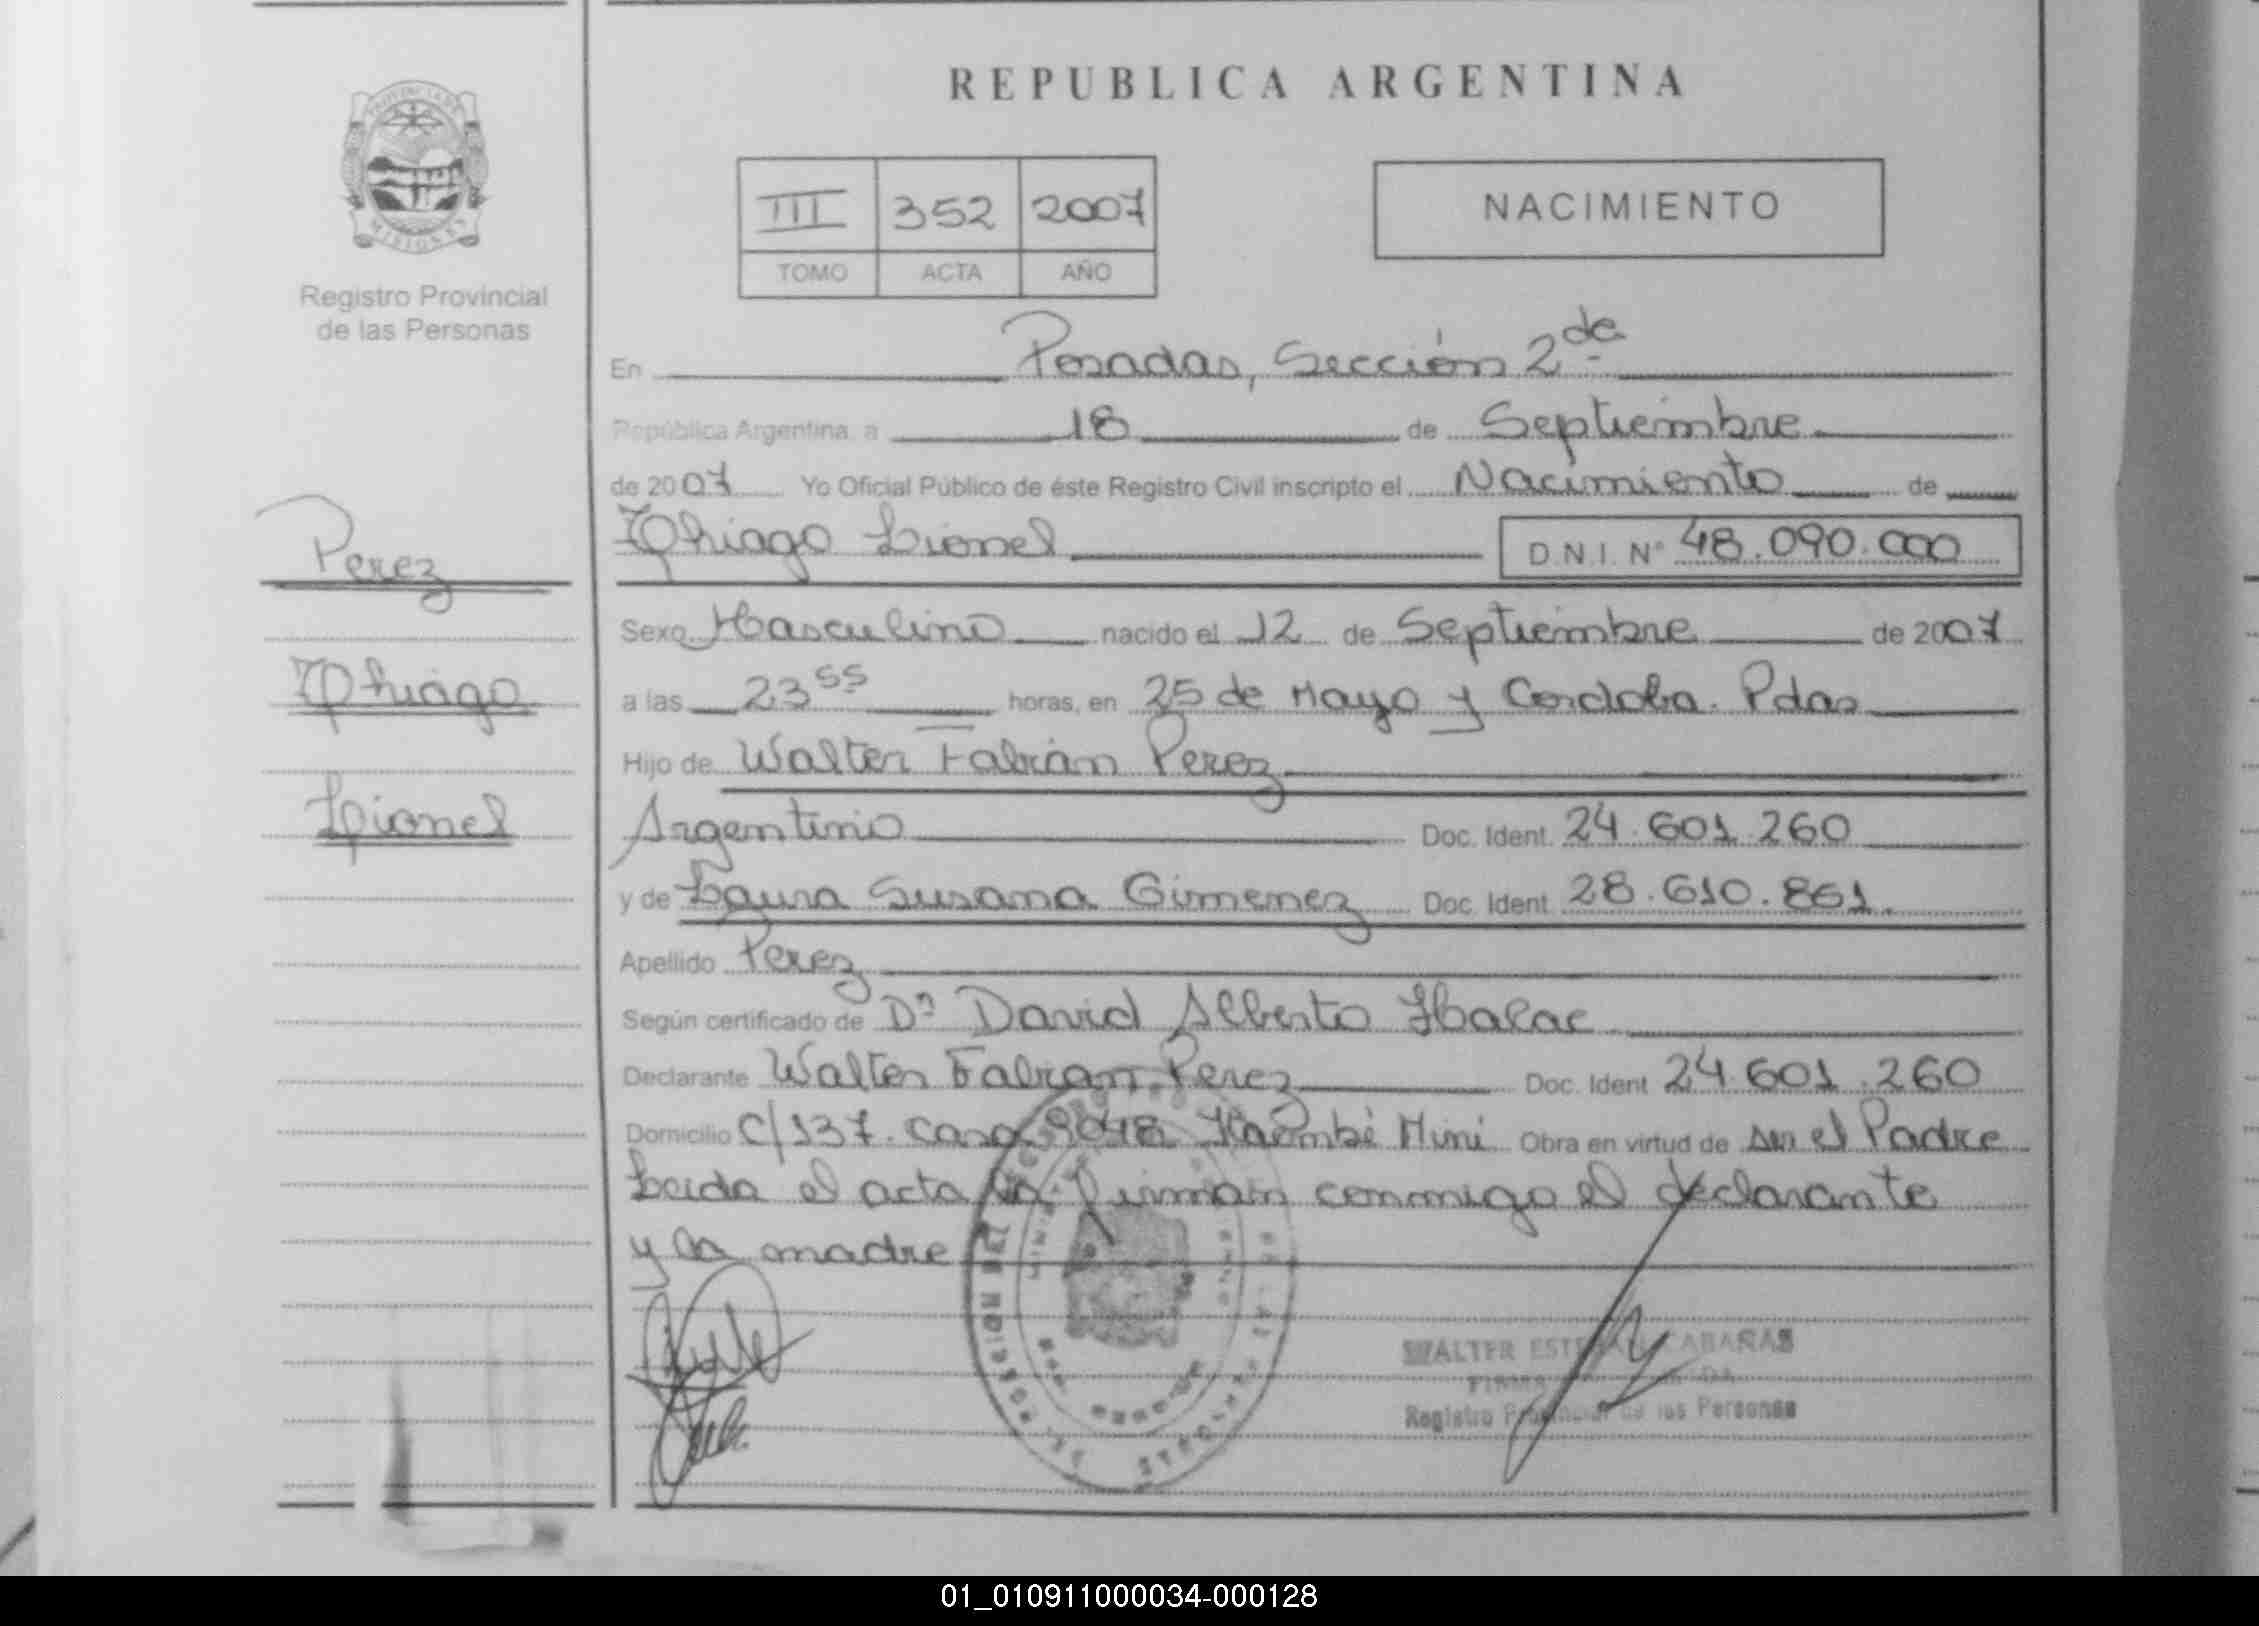 PROVINCIA DE
MISIONES
Registro Provincial
de las Personas
Perez
Thiago
Lionel
REPUBLICA ARGENTINA
III 352 2007
TOMO ACTA AÑO
NACIMIENTO
En Posadas, Sección 2da
República Argentina, a 18 de Septiembre
de 2007 Yo Oficial Público de éste Registro Civil inscripto el Nacimiento de
Thiago Lionel D.N.I. N° 48.090.000
Sexo Masculino nacido el 12 de Septiembre de 2007
a las 23 55 horas, en 25 de Mayo y Cordoba. Pdas
Hijo de Walter Fabián Perez
Argentino Doc. Ident. 24.601.260
y de Laura Susana Gimenez Doc. Ident. 28.610.861.
Apellido Perez
Según certificado de Dn David Alberto Halac
Declarante Walter Fabian Perez Doc. Ident 24.601.260
Domicilio C/137. Casa 9048 Itaembé Mini Obra en virtud de ser el Padre
Leida el acta la firman conmigo el declarante
y la madre
WALTER CABAÑAS
Registro Provincial de las Personas
01_010911000034-000128